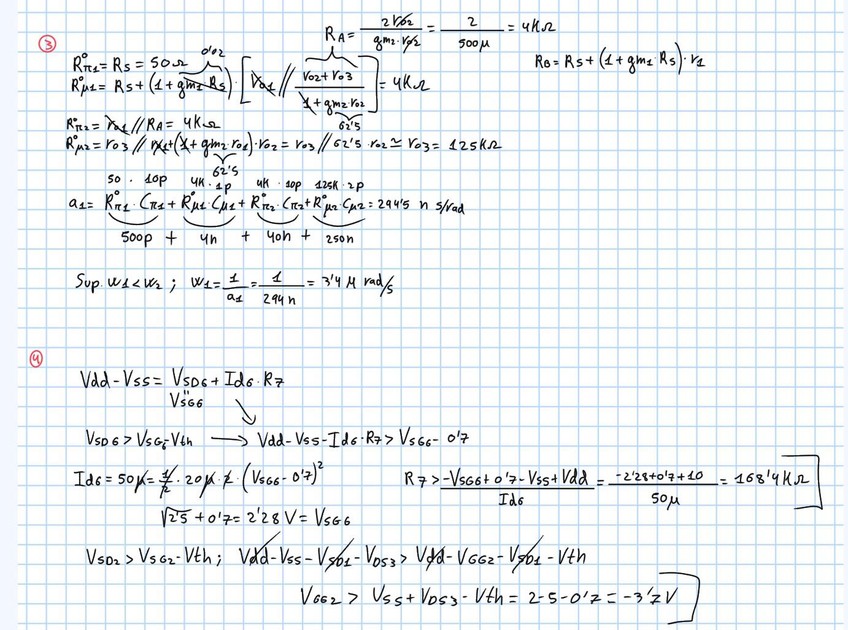 ③ R_A = 2r02/(gm2·r02) = 2/500μ = 4KΩ
0'02
R°π1 = Rs = 50Ω
R_B = Rs + (1 + gm1·Rs)·r1
R°μ1 = Rs + (1 + gm1·Rs)·[ro1 // (ro2 + ro3)/(1 + gm2·ro2)] = 4KΩ
62'5
R°π2 = ro1 // RA = 4KΩ
R°μ2 = ro3 // ro1 + (1 + gm2·ro1)·ro2 = ro3 // 62'5·ro2 ≃ ro3 = 125KΩ
62'5
50 · 10p 4K · 1p 4K · 10p 125K · 2p
a1 = R°π1·Cπ1 + R°μ1·Cμ1 + R°π2·Cπ2 + R°μ2·Cμ2 = 294'5 n s/rad
500p + 4n + 40n + 250n
Sup. w1 < w2 ; w1 = 1/a1 = 1/294n = 3'4 M rad/s
④
Vdd - Vss = VSD6 + Id6·R7
"
VSG6
VSD6 > VSG6 - Vth → Vdd - Vss - Id6·R7 > VSG6 - 0'7
Id6 = 50μ = 1/2 · 20μ · 2 · (VSG6 - 0'7)²
R7 > (-VSG6 + 0'7 - Vss + Vdd)/Id6 = (-2'28 + 0'7 + 10)/50μ = 168'4KΩ
√2'5 + 0'7 = 2'28 V = VSG6
VSD2 > VSG2 - Vth ; Vdd - Vss - VSD1 - VDS3 > Vdd - VGG2 - VSD1 - Vth
VGG2 > Vss + VDS3 - Vth = 2 - 5 - 0'7 = -3'7V